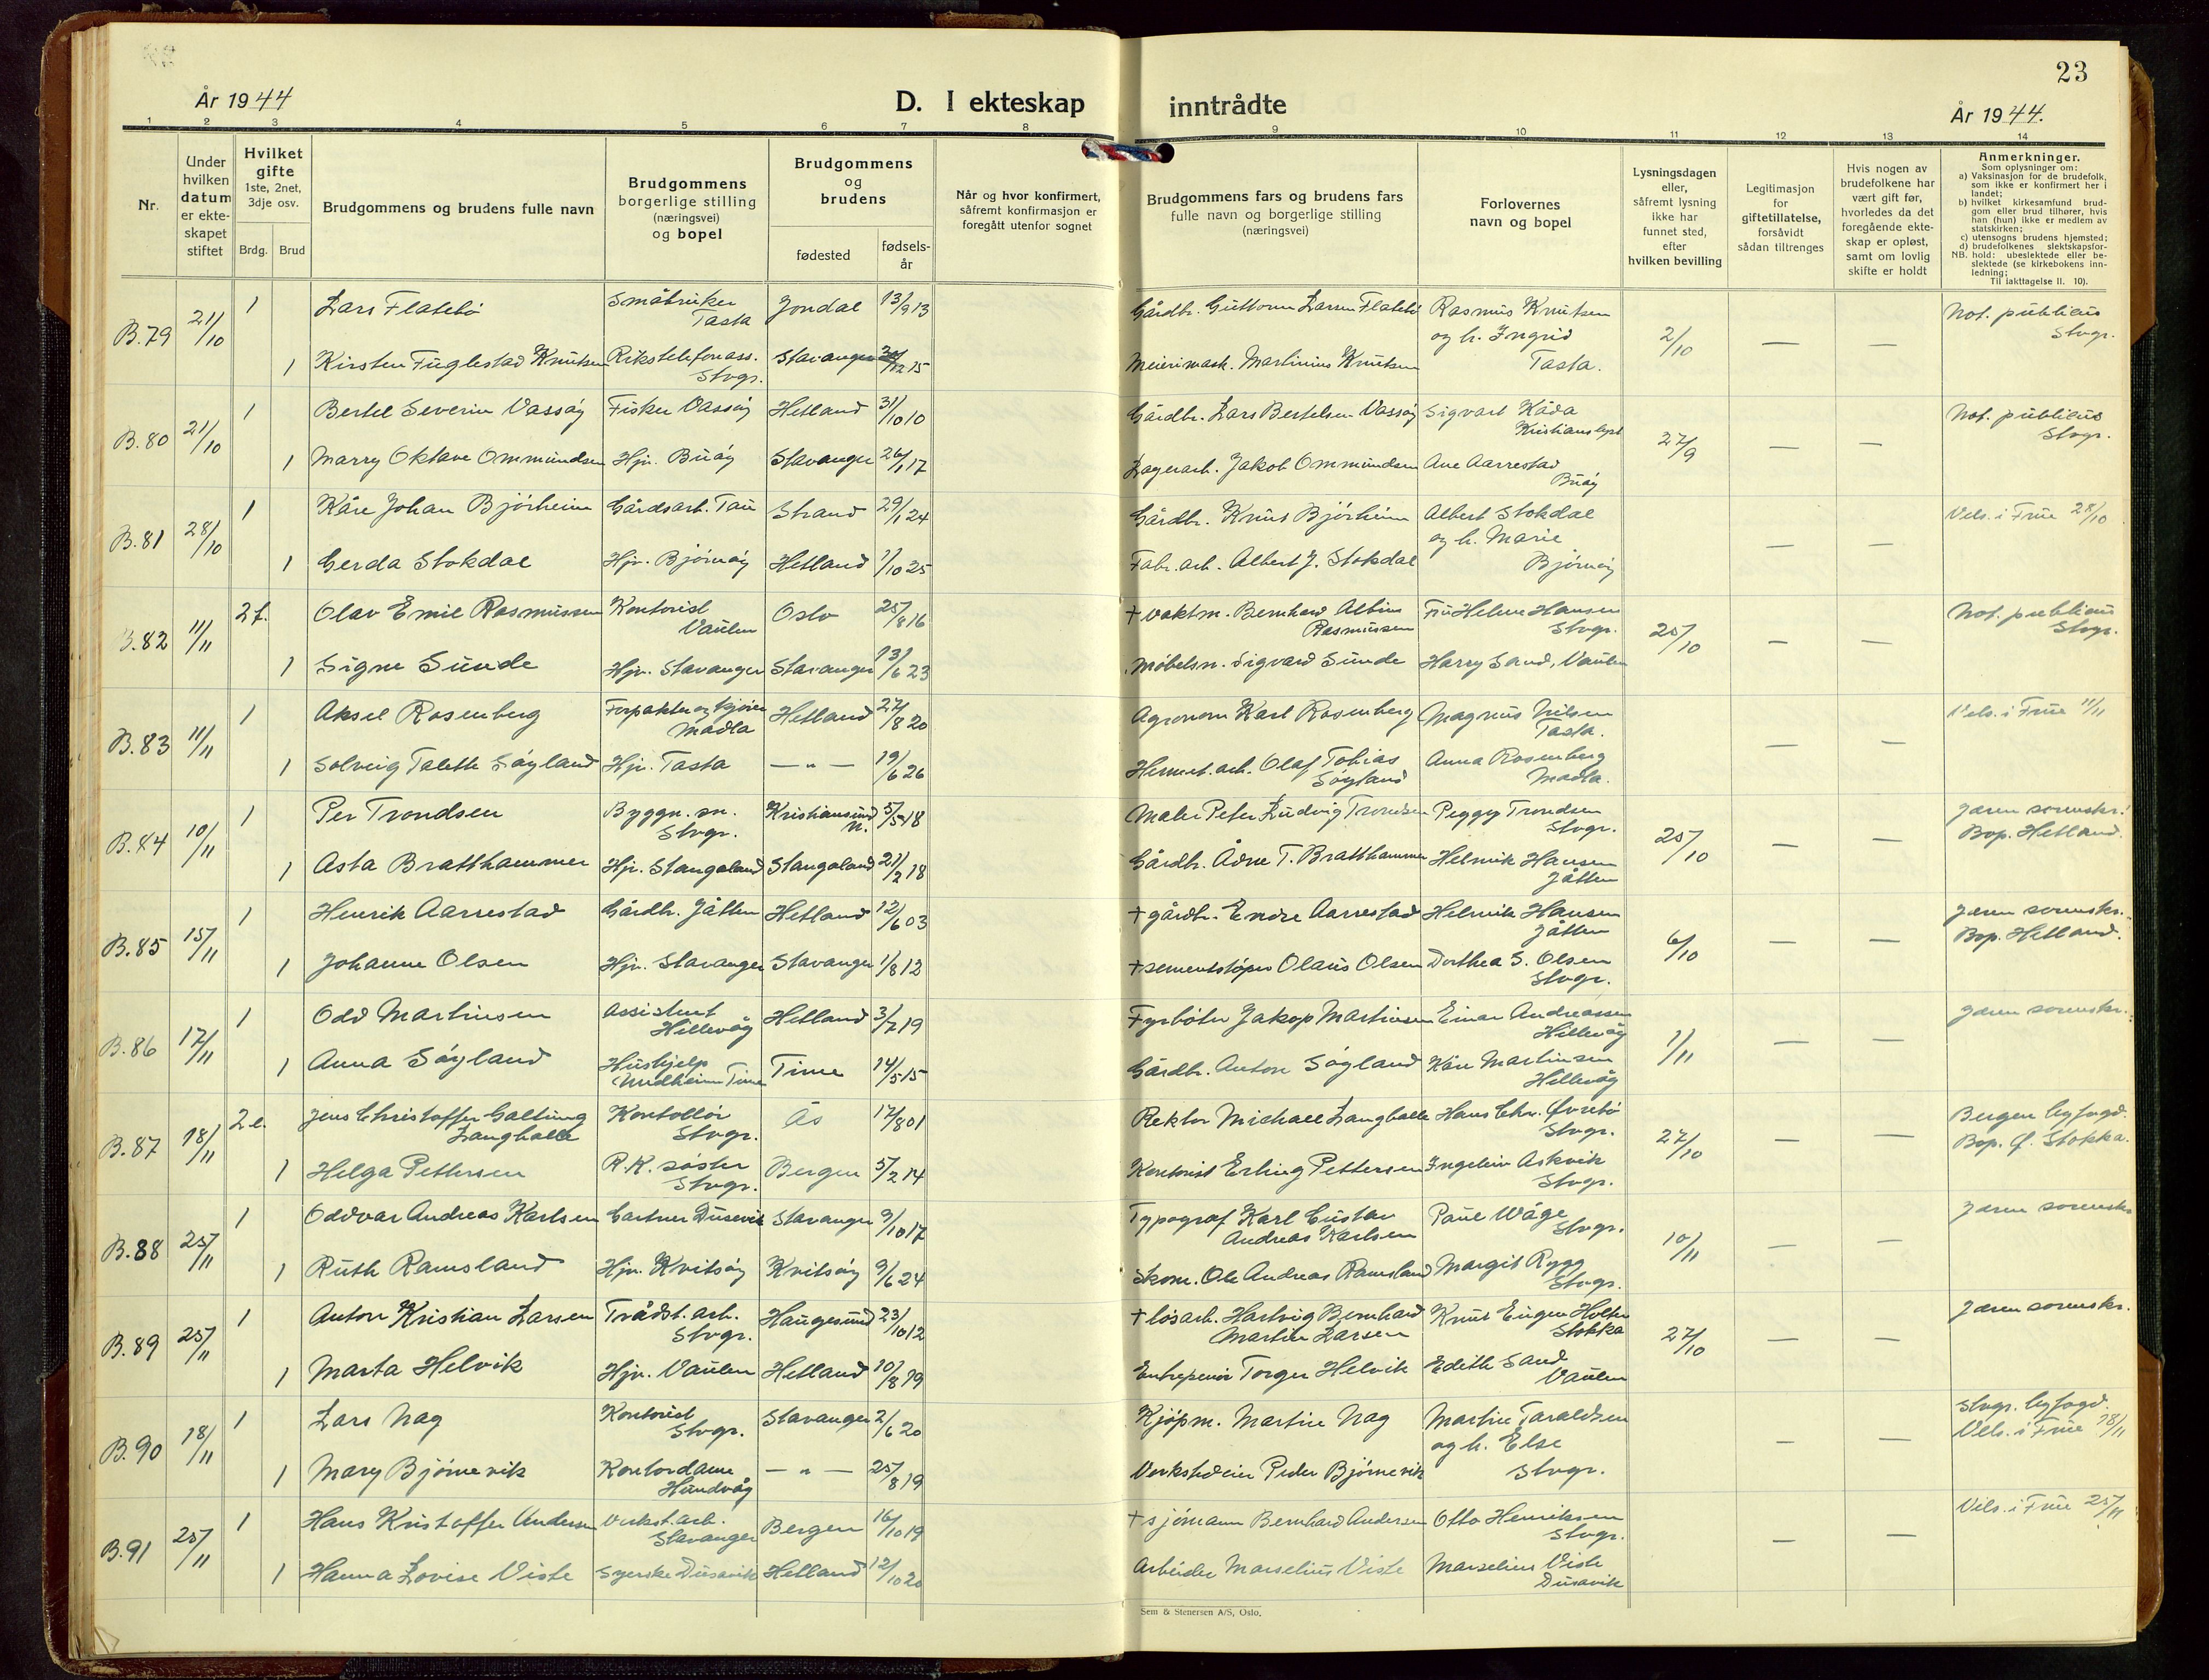 23
År 1944
D. I ekteskap inntrådte
År 1944.
1 2 3 4 5 6 7 8 9 10 11 12 13 14
Nr.
Under hvilken datum er ekte-skapet stiftet
Hvilket gifte
1ste, 2net, 3dje osv.
Brdg. Brud
Brudgommens og brudens fulle navn
Brudgommens borgerlige stilling (næringsvei) og bopel
Brudgommens og brudens
fødested
fødsels-år
Når og hvor konfirmert, såfremt konfirmasjon er foregått utenfor sognet
Brudgommens fars og brudens fars fulle navn og borgerlige stilling (næringsvei)
Forlovernes navn og bopel
Lysningsdagen eller, såfremt lysning ikke har funnet sted, efter hvilken bevilling
Legitimasjon for giftetillatelse, forsåvidt sådan tiltrenges
Hvis nogen av brudefolkene har vært gift før, hvorledes da det foregående ekte-skap er opløst, samt om lovlig skifte er holdt
Anmerkninger.
Som oplysninger om:
a) Vaksinasjon for de brudefolk, som ikke er konfirmert her i landet;
b) hvilket kirkesamfund brud-gom eller brud tilhører, hvis han (hun) ikke er medlem av statskirken;
c) utensogns brudens hjemsted;
d) brudefolkenes slektskapsfor-hold: ubeslektede eller be-slektede (se kirkebokens inn-ledning;
NB.
Til iakttagelse II. 10).
B.79 21/10 1 Lars Flatebø Småbruker Tasta Jondal 13/9 13 Gårdbr. Guttorm Larsen Flatebø Rasmus Knutsen og h. Ingrid Tasta. 2/10 — — Not. publicus Stvgr.
1 Kirsten Fuglestad Knutsen Rikstelefonass. Stvgr. Stavanger 12 15 Meierimask. Martinius Knutsen
B.80 21/10 1 Bertel Severin Vassøy Fisker Vassøy Hetland 31/10 10 Gårdbr. Lars Bertelsen Vassøy Sigvart Kåda Kristianslyst 27/9 — — Not. publicus Stvgr.
1 Marry Oktave Ommundsen Hjv. Buøy Stavanger 26/1 17 Lagerarb. Jakob Ommundsen Ane Aarrestad Buøy
B.81 28/10 1 Kåre Johan Bjørheim Gårdsarb. Tau Strand 29/1 24 Gårdbr. Knut Bjørheim Albert Stokdal og h. Marie Bjørnøy — — Vels. i Frue 28/10
1 Gerda Stokdal Hjv. Bjørnøy Hetland 1/10 25 Fabr. arb. Albert J. Stokdal
B.82 11/11 2 f. Olav Emil Rasmussen Kontorist Vaulen Oslo 25/8 16 + vaktm. Bernhard Albin Rasmussen Fru Helene Hansen Stvgr. 25/10 — — Not. publicus Stvgr.
1 Signe Sunde Hjv. Stavanger Stavanger 13/6 23 Møbelsn. Sigvard Sunde Harry Sand, Vaulen
B.83 11/11 1 Aksel Rosenberg Forpakter og kjører Madla Hetland 27/8 20 Agronom Karl Rosenberg Magnus Nilsen Tasta. — — Vels. i Frue 11/11
1 Solveig Talette Søyland Hjv. Tasta — " — 19/6 26 Hermet. arb. Olaf Tobias Søyland Anna Rosenberg Madla.
B.84 10/11 1 Per Trondsen Byggn. sn. Stvgr. Kristiansund N. 5/5 18 Maler Peter Ludvig Trondsen Peggy Trondsen Stvgr. 25/10 — — Jæren sorenskr. Bop. Hetland.
1 Asta Bratthammer Hjv. Stangaland Stangaland 21/2 18 Gårdbr. Ådne T. Bratthammer Helmik Hansen Jåtten
B.85 15/11 1 Henrik Aarrestad Gårdbr. Jåtten Hetland 12/6 03 + gårdbr. Endre Aarrestad Helmik Hansen Jåtten 6/10 — — Jæren sorenskr. Bop. Hetland.
1 Johanne Olsen Hjv. Stavanger Stavanger 1/8 12 + sementstøper Olaus Olsen Dorthea S. Olsen Stvgr.
B.86 17/11 1 Odd Martinsen Assistent Hillevåg Hetland 3/7 19 Fyrbøter Jakop Martinsen Einar Andreassen Hillevåg 1/11 — — Jæren sorenskr.
1 Anna Søyland Hushjelp Undheim Time Time 14/5 15 Gårdbr. Anton Søyland Kåre Martinsen Hillevåg
B.87 18/11 2 e. Jens Christoffer Galtung Langballe Kontollør Stvgr. Ås 17/8 01 Rektor Michael Langballe Hans Chr. Øvrebø Stvgr. 27/10 — — Bergen byfogd. Bop. Ø. Stokka.
1 Helga Pettersen R.K. søster Stvgr. Bergen 5/2 14 Kontorist Erling Pettersen Ingeleiv Askvik Stvgr.
B.88 25/11 1 Oddvar Andreas Karlsen Gartner Dusevik Stavanger 9/10 17 Typograf Karl Gustav Andreas Karlsen Paul Wåge Stvgr. 10/11 — — Jæren sorenskr.
1 Ruth Ramsland Hjv. Kvitsøy Kvitsøy 9/6 24 Skom. Ole Andreas Ramsland Margit Rygg Stvgr.
B.89 25/11 1 Anton Kristian Larsen Trådst. arb. Stvgr. Haugesund 23/10 12 + løsarb. Hartvig Bernhard Martin Larsen Knut Eugen Holten Stokka 27/10 — — Jæren sorenskr.
1 Marta Helvik Hjv. Vaulen Hetland 10/8 19 Entreprenør Torger Helvik Edith Sand Vaulen
B.90 18/11 1 Lars Nag Kontorist Stvgr. Stavanger 2/6 20 Kjøpm. Martin Nag Martin Taraldsen og h. Else Stvgr. — — Stvgr. byfogd. Vels. i Frue 18/11
1 Mary Bjørnevik Kontordame Hundvåg — " — 25/8 19 Verkstedeier Peder Bjørnevik
B.91 25/11 1 Hans Kristoffer Andersen Verkst. arb. Stavanger Bergen 16/10 19 + sjømann Bernhard Andersen Otto Henriksen Stvgr. — — Vels. i Frue 25/11
1 Hanna Lovise Viste Syerske Dusavik Hetland 12/10 20 Arbeider Marselius Viste Marselius Viste Dusavik
Sem & Stenersen A/S, Oslo.